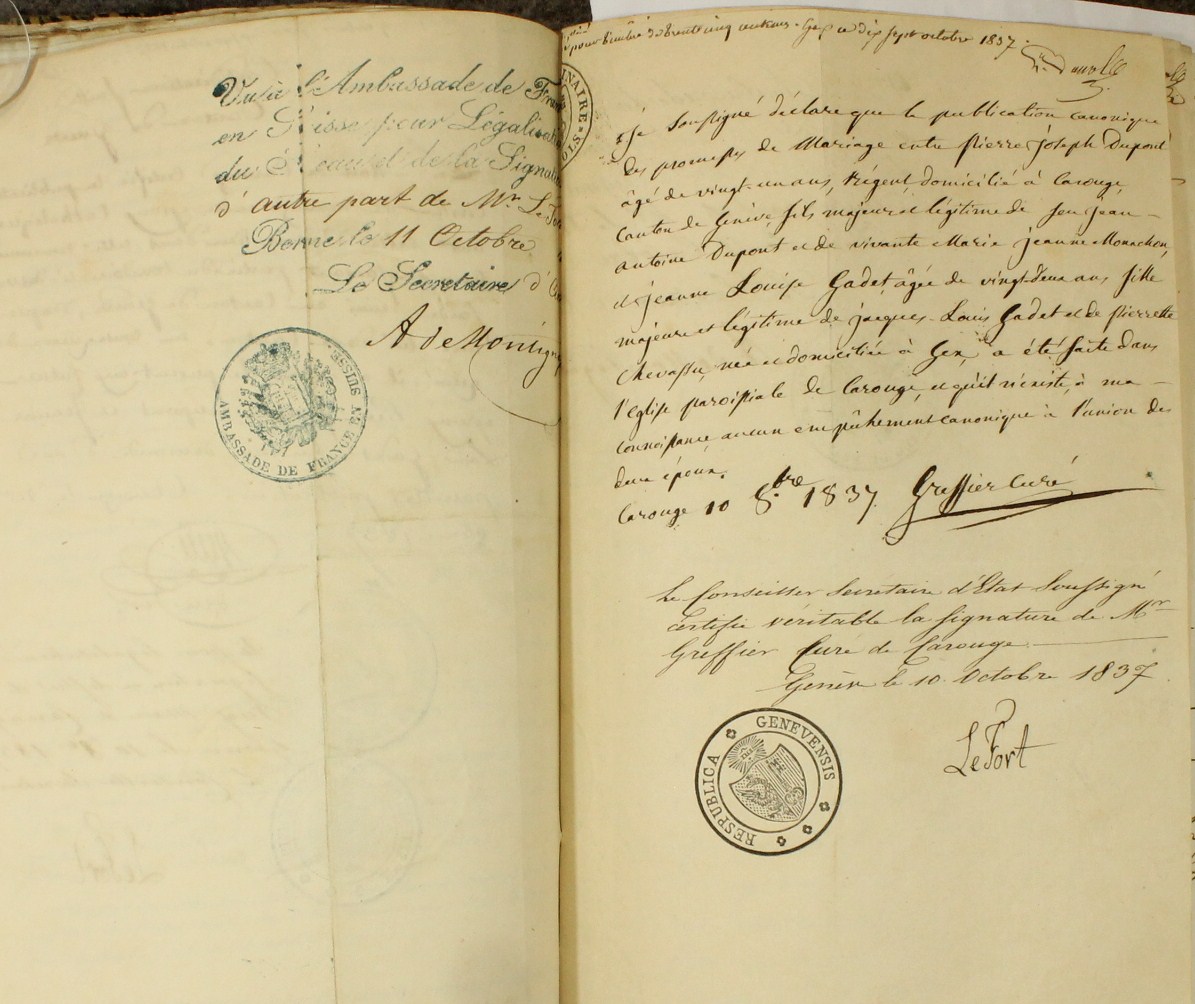 Vu à l'Ambassade de Fran
en Suisse pour Légalisati
du Sceau et de la Signatu
d'autre part de Mr. Le For
Berne le 11 Octobre
Le Secretaire d'
A de Montign
AMBASSADE DE FRANCE EN SUISSE
pour timbre de trente cinq centimes. Gex ce dix sept octobre 1837.
INAIRE
Je soussigné déclare que la publication canonique
des promesses de Mariage entre pierre Joseph Dupont
âgé de vingt-un ans, Régent, domicilié à Carouge,
Canton de Genève, fils majeur et légitime de feu jean-
antoine Dupont et de vivante Marie jeanne Monachon,
et jeanne Louise Gadet, âgée de vingt-deux ans fille
majeure et légitime de jacques-Louis Gadet et de pierrette
Chevassu, née et domiciliée à Gex, a été faite dans
l'Eglise paroissiale de Carouge, et qu'il n'existe, à ma-
connoissance, aucun empêchement canonique à l'union des
deux époux.
Carouge 10 8.bre 1837. Greffier Curé
Le Conseiller Secrétaire d'Etat Soussigné
certifie véritable la signature de Mr
Greffier Curé de Carouge.
Genève le 10. Octobre 1837.
RESPUBLICA GENEVENSIS
LeFort